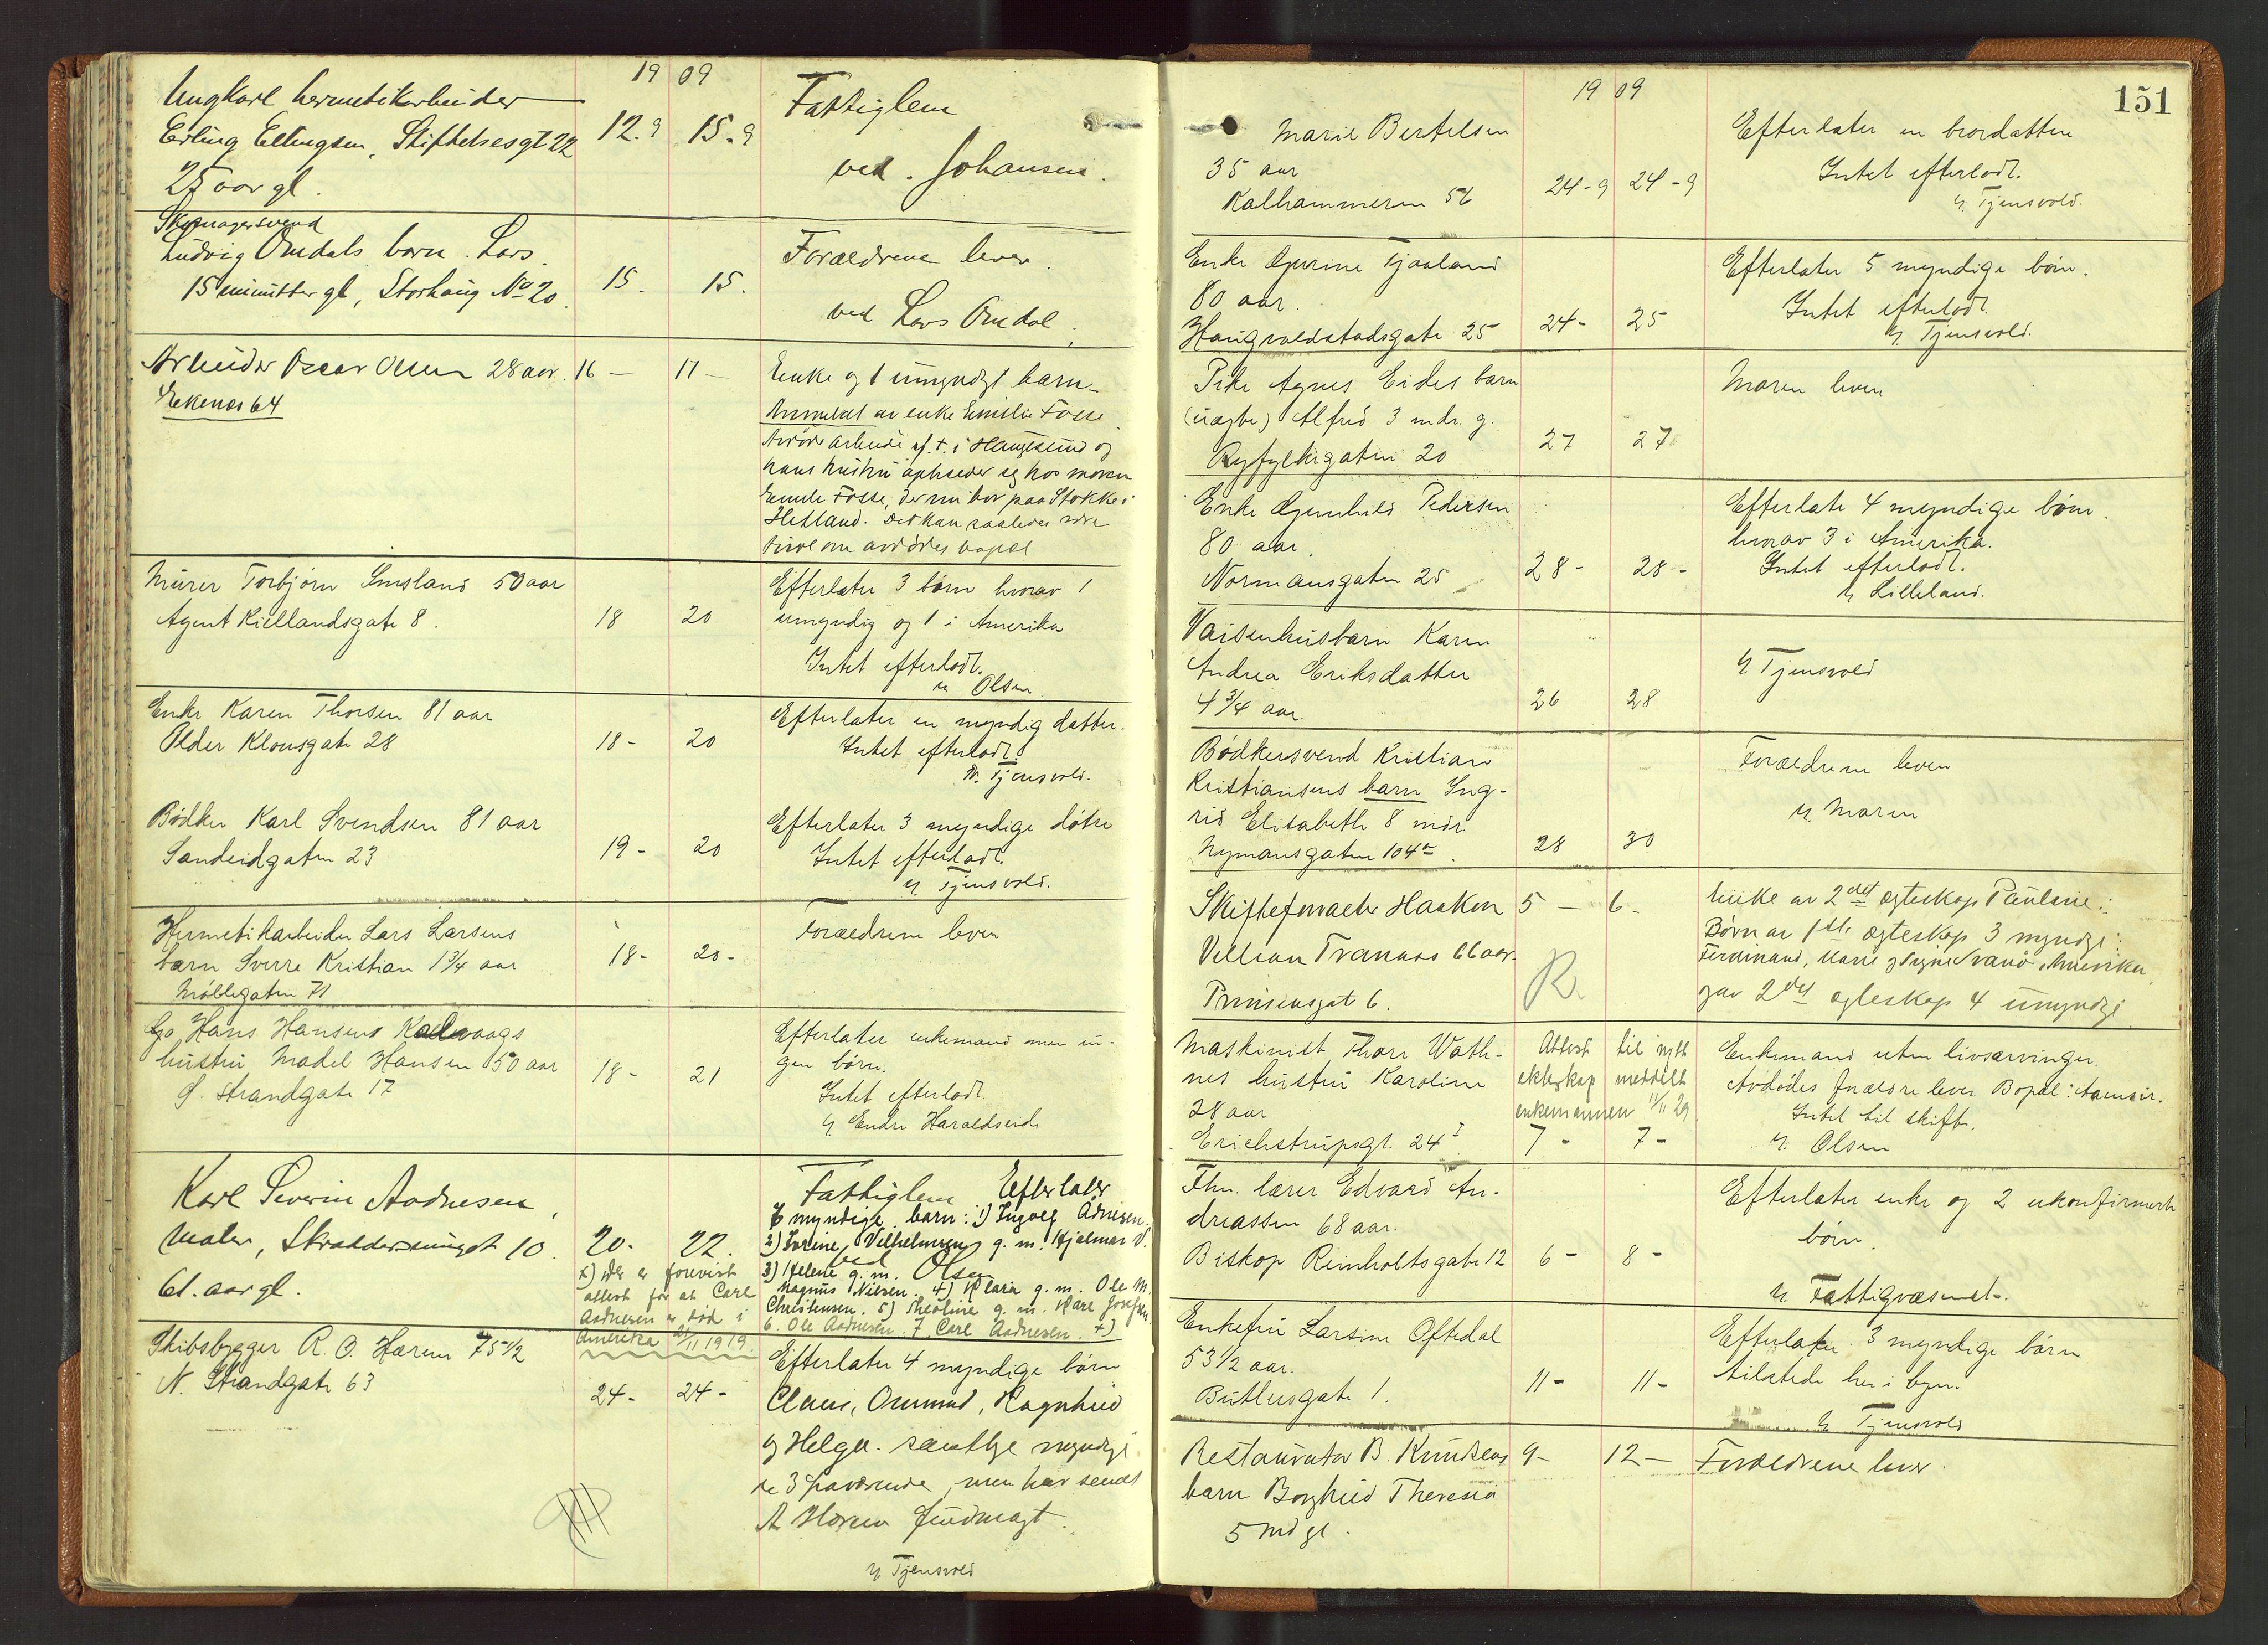 19 09
Ungkarl hermetikarbeider
Erling Ellingsen, Stiftelsesgt 22
25 aar gl.
12.9 15.9
Fattiglem
ved. Johansen.
Skomagersvend
Ludvig Omdals barn. Lars.
15 minutter gl, Storhaug No 20.
15. 15.
Forældrene lever.
ved Lars Omdal.
Arbeider Oscar Olsen 28 aar.
Ekenes 64
16 — 17 —
Enke og 1 umyndigt barn_
Anmeldt av enke Emilie Fosse.
Avdøde arbeide f. t. i Haugesund og
hans hustru opholder sig hos moren
Emilie Fosse, der nu bor paa Stokke i
Hetland. Det kan saaledes være
tivil om avdødes bopæl
Murer Torbjørn Imsland 50 aar
Agent Kiellandsgate 8.
18 20
Efterlater 3 børn hvorav 1
umyndig og 1 i Amerika
Intet efterladt.
v. Olsen.
Enke Karen Thorsen 81 aar
Peder Klowsgate 28
18- 20
Efterlater en myndig datter.
Intet efterladt.
v. Tjensvold.
Bødker Karl Svendsen 81 aar
Sandeidgaten 23
19- 20
Efterlater 3 myndige døtre
Intet efterladt.
v. Tjensvold.
Hermetikarbeider Lars Larsens
barn Sverre Kristian 1 3/4 aar
Møllegaten 71
18- 20-
Forældrene lever
Hans Hansens
hustru Madel Hansen 50 aar
Ø. Strandgate 17
18- 21
Efterlater enkemand men in-
gen børn.
Intet efterladt.
v. Endre Haraldseid
Karl Severin Aadnesen,
maler, Skräddersmuget 10
61. aar gl.
20. 22.
x) Der er forevist
attest for at Carl
Aadnesen er død i
Amerika 21/11 1919.
Fattiglem Efterlater
7 myndige barn: 1) Ingolf Adnesen,
2) Serine Vilhelmsen g. m. Hjalmar V.
ved Olsen
3) Helene g. m.
Magnus Nilsen. 4) Klara g. m. Ole M.
Christensen. 5) Theoline g. m. Karl Josefsen
6. Ole Aadnesen. 7 Carl Aadnesen. x)
Skibsbygger R. O. Hæren 75 1/2
N. Strandgate 63
24- 24-
Efterlater 4 myndige børn
Claus, Ommund, Ragnhild
og Helga. samtlge myndge
de 3 fraværende, men har sendt
A Hæren fuldmagt.
v. Tjensvold
151
19 09
Marie Bertelsen
35 aar
Kalhammeren 56
24-9 24-9
Efterlater en brordatter
Intet efterladt.
v. Tjensvold.
Enke Gurine Tjaaland
80 aar.
Haugvaldstadsgate 25
24- 25
Efterlater 5 myndige børn.
Intet efterladt
v. Tjensvold.
Pike Agnes Eides barn
(uægte) Alfred 3 mdr. g.
Ryfylkegaten 20
27 27
Moren lever
Enke Gunhild Pedersen
80 aar.
Normansgaten 25
28- 28-
Efterlate 4 myndige børn.
hvorav 3 i Amerika.
Intet efterladt.
v. Lilleland.
Vaisenhusbarn Karen
Andrea Eriksdatter
4 3/4 aar.
26 28
v. Tjensvold
Bødkersvend Kristian
Kristiansens barn Ing-
rid Elisabeth 8 mdr
Nymansgaten 104a.
28 30
Forældrene lever
v. Moren
Skifteforacter Haakon
Villian Tranaas 66 aar.
Prinsensgt 6.
5 — 6-
R.
Enke av 2det ægteskap Pauline:
Børn av 1ste ægteskap 3 myndge:
Ferdinand, Marie og Signe Amerika
og av 2det ægteskap 4 umyndge
Maskinist Thore Wath-
nes hustru Karoline
28 aar
Erichstrupsgt. 24 I
Attest til nytt
ekteskap meddelt
enkemannen 11/11 29
7- 7-
Enkemand uten livsarvinger.
Avdødes forældre lever Bopæl: Aamsir.
Intet til skifte.
v. Olsen
Fhv. lærer Edvard An-
dreassen 68 aar.
Biskop Reinholtsgate 12
6- 8-
Efterlater enke og 2 ukonfirmerte
børn.
v. Fattigvæsenet.
Enkefru Larsine Oftedal
53 1/2 aar.
Butlersgate 1.
11- 11-
Efterlater 3 myndige børn
tilstede her i byen.
v. Tjensvold
Restauratør B. Knudsens
barn Borghild Theresia
5 md gl.
9- 12-
Forældrene lever.